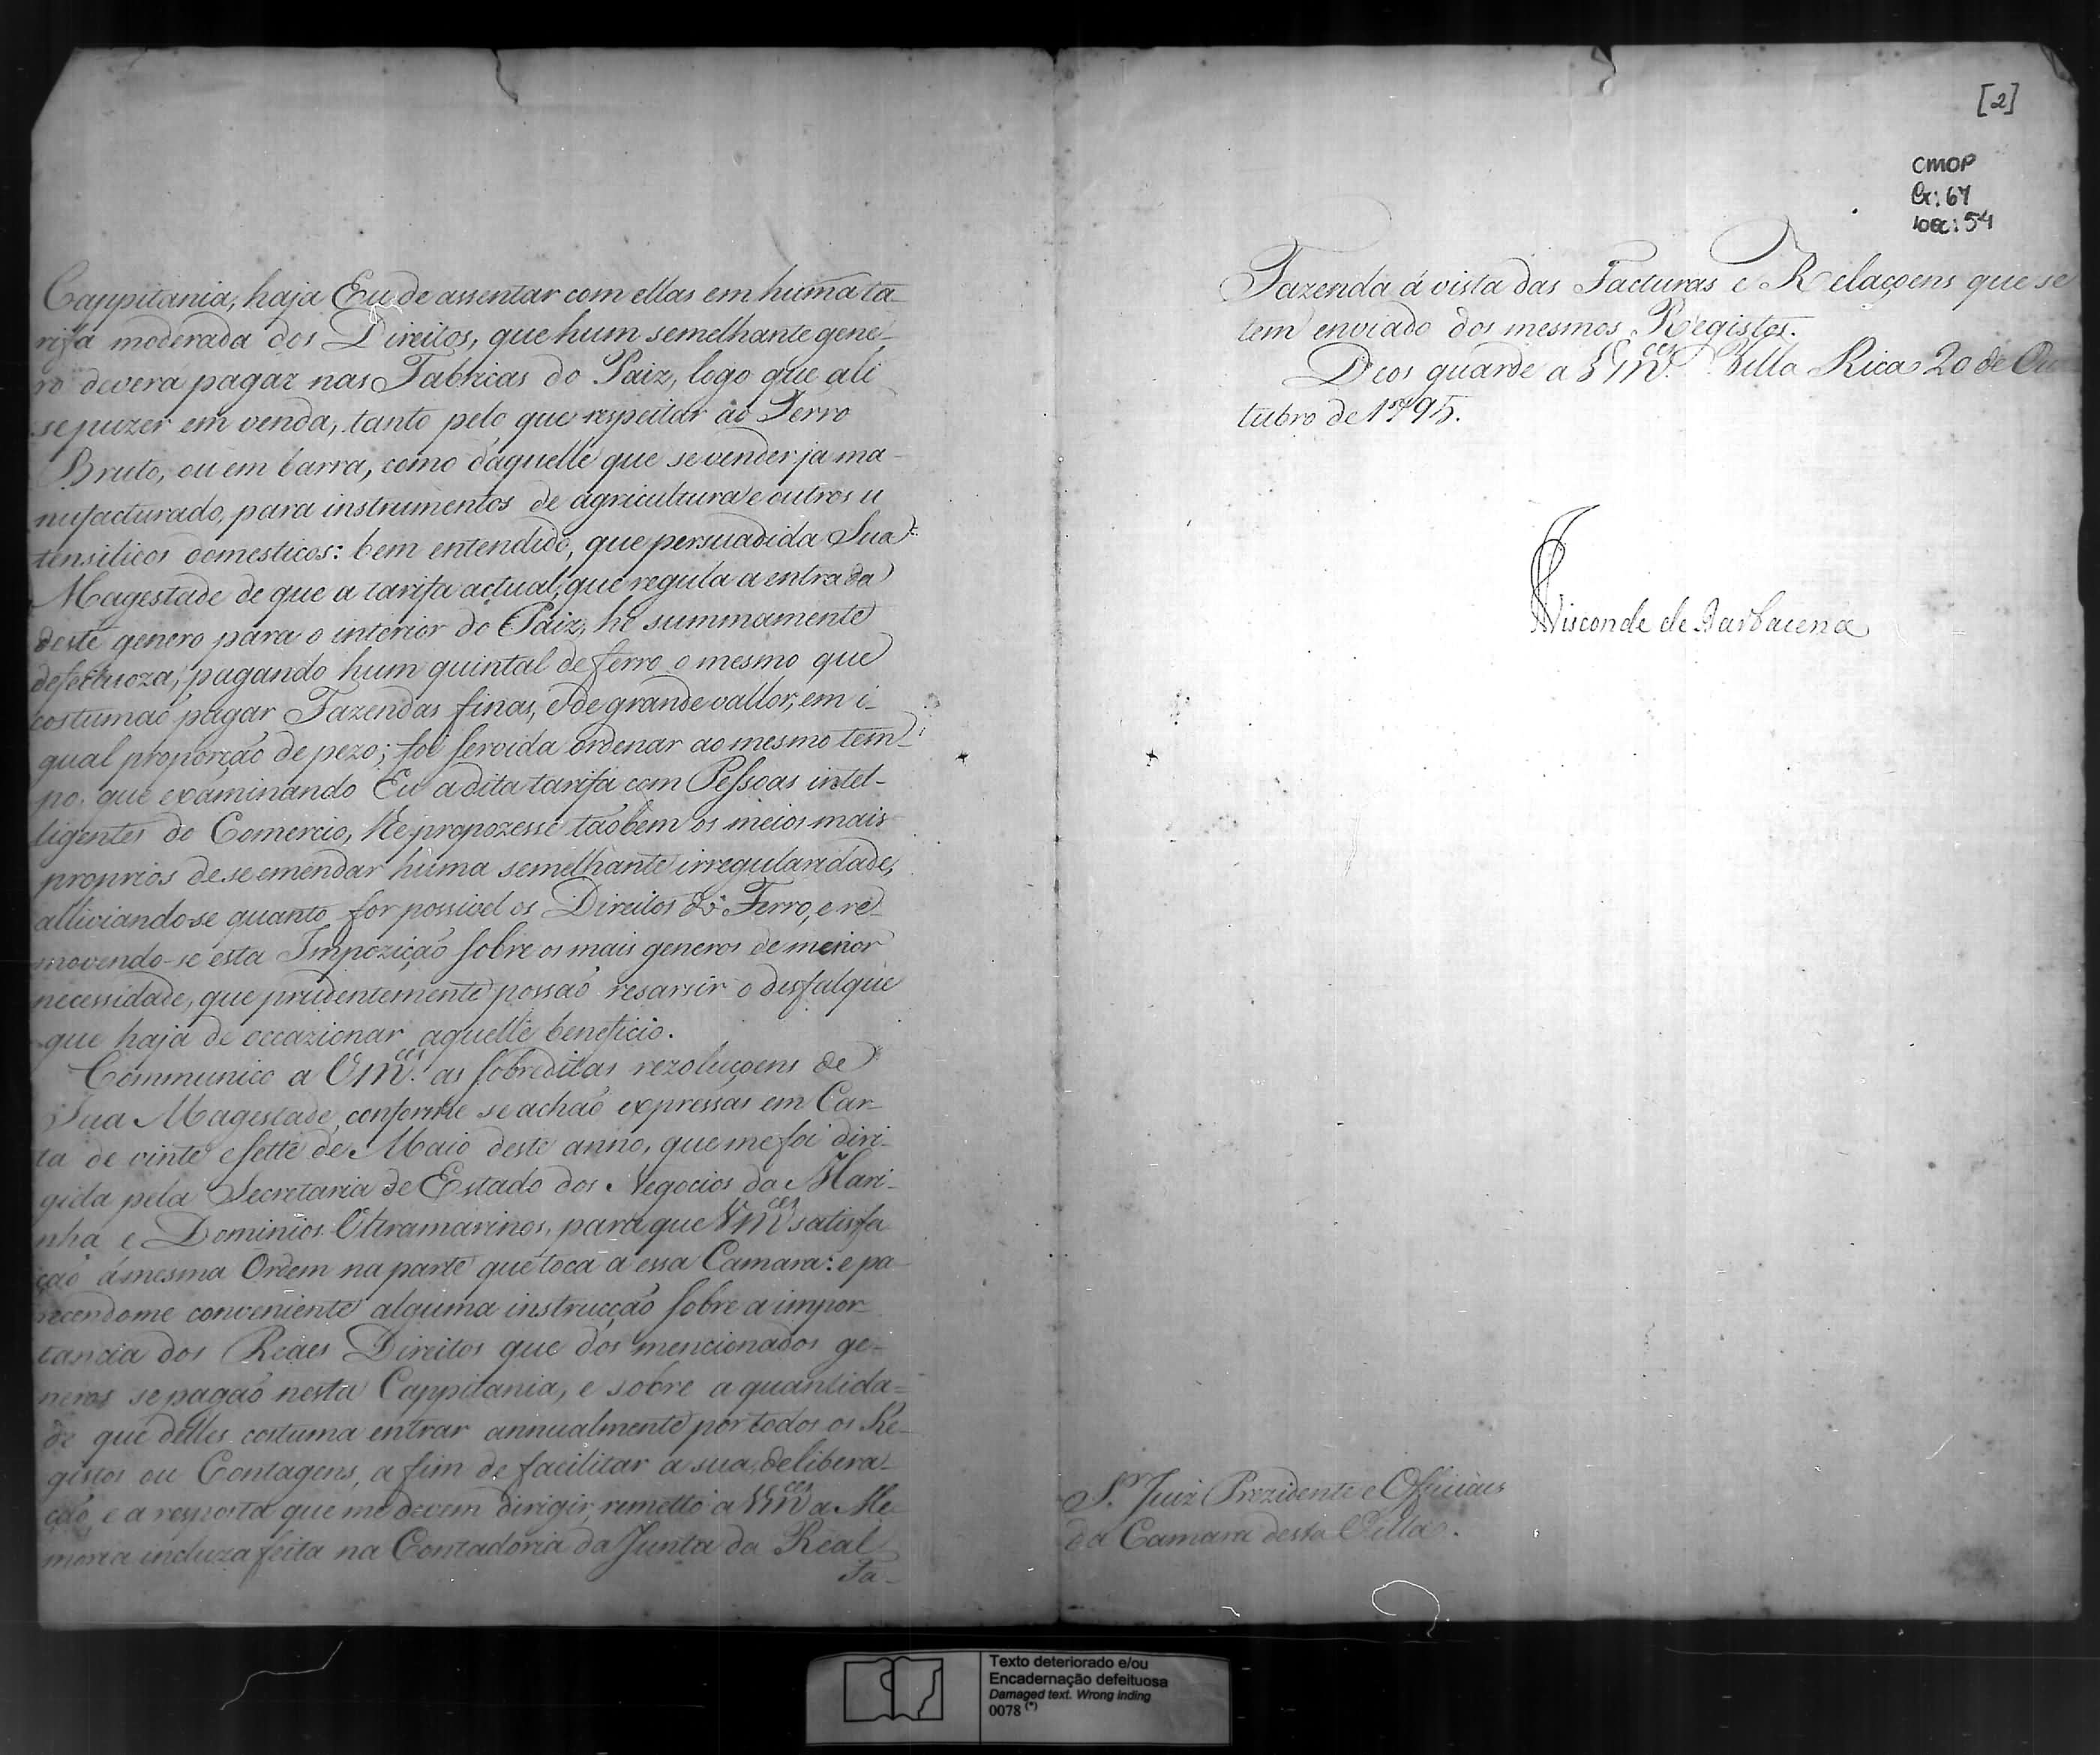 Cappitania, haja Eu de assentar com ellas em huma ta
rifa moderada dos Direitos, que hum semelhante gene-
ro devera pagar nas Fabricas do Paiz, logo que ali
se puzer em venda, tanto pelo que respeitar ao Ferro
Bruto, ou em barra, como daquelle que se vender ja ma-
nufacturado, para instrumentos de agricultura e outros u
tensilios domesticos: bem entendido, que persuadida Sua
Magestade de que a tarifa actual, que regula a entrada
deste genero para o interior do Paiz, he summamente
defeituoza, pagando hum quintal de ferro o mesmo que
costumaõ pagar Fazendas finas, e de grande vallor, em i-
gual proporção de pezo; foi servida ordenar ao mesmo tem-
po que examinando Eu a dita tarifa com Pessoas intel-
ligentes do Comercio, lhe propozesse taõbem os meios mais
proprios de se emendar huma semelhante irregularidade,
alliviando-se quanto for possivel os Direitos do Ferro, e re-
movendo-se esta Impozição sobre os mais generos de menor
necessidade, que prudentemente possaõ resarsir o disfalque
que haja de occazionar aquelle beneficio.
Communico a Vm.ces as sobreditas rezoluçoens de
Sua Magestade, conforme se achaõ expressas em Car-
ta de vinte e sette de Maio deste anno, que me foi diri-
gida pela Secretaria de Estado dos Negocios da Mari-
nha e Dominios Ultramarinos, para que Vm.ces satisfa
çaõ á mesma Ordem na parte que toca a essa Camara: e pa
recendome conveniente alguma instrucção sobre a impor-
tancia dos Reaes Direitos que dos mencionados ge-
neros se pagaõ nesta Cappitania, e sobre a quantida-
de que delles costuma entrar annualmente por todos os Re-
gistos ou Contagens, a fim de facilitar a sua delibera-
ção e a resposta que me devem dirigir, remetto a Vm.ces a Me-
moria incluza feita na Contadoria da Junta da Real
Fa-
[2]
CMOP
Cx: 67
DOC: 54
Fazenda á vista das Facturas e Relaçoens que se
tem enviado dos mesmos Registos.
Deos guarde a Vm.ces Villa Rica 20 de Ou
tubro de 1795.
Visconde de Barbacena
S.r Juiz Prezidente e Officiaes
da Camara desta Villa.
Texto deteriorado e/ou
Encadernação defeituosa
Damaged text. Wrong inding
0078 (*)